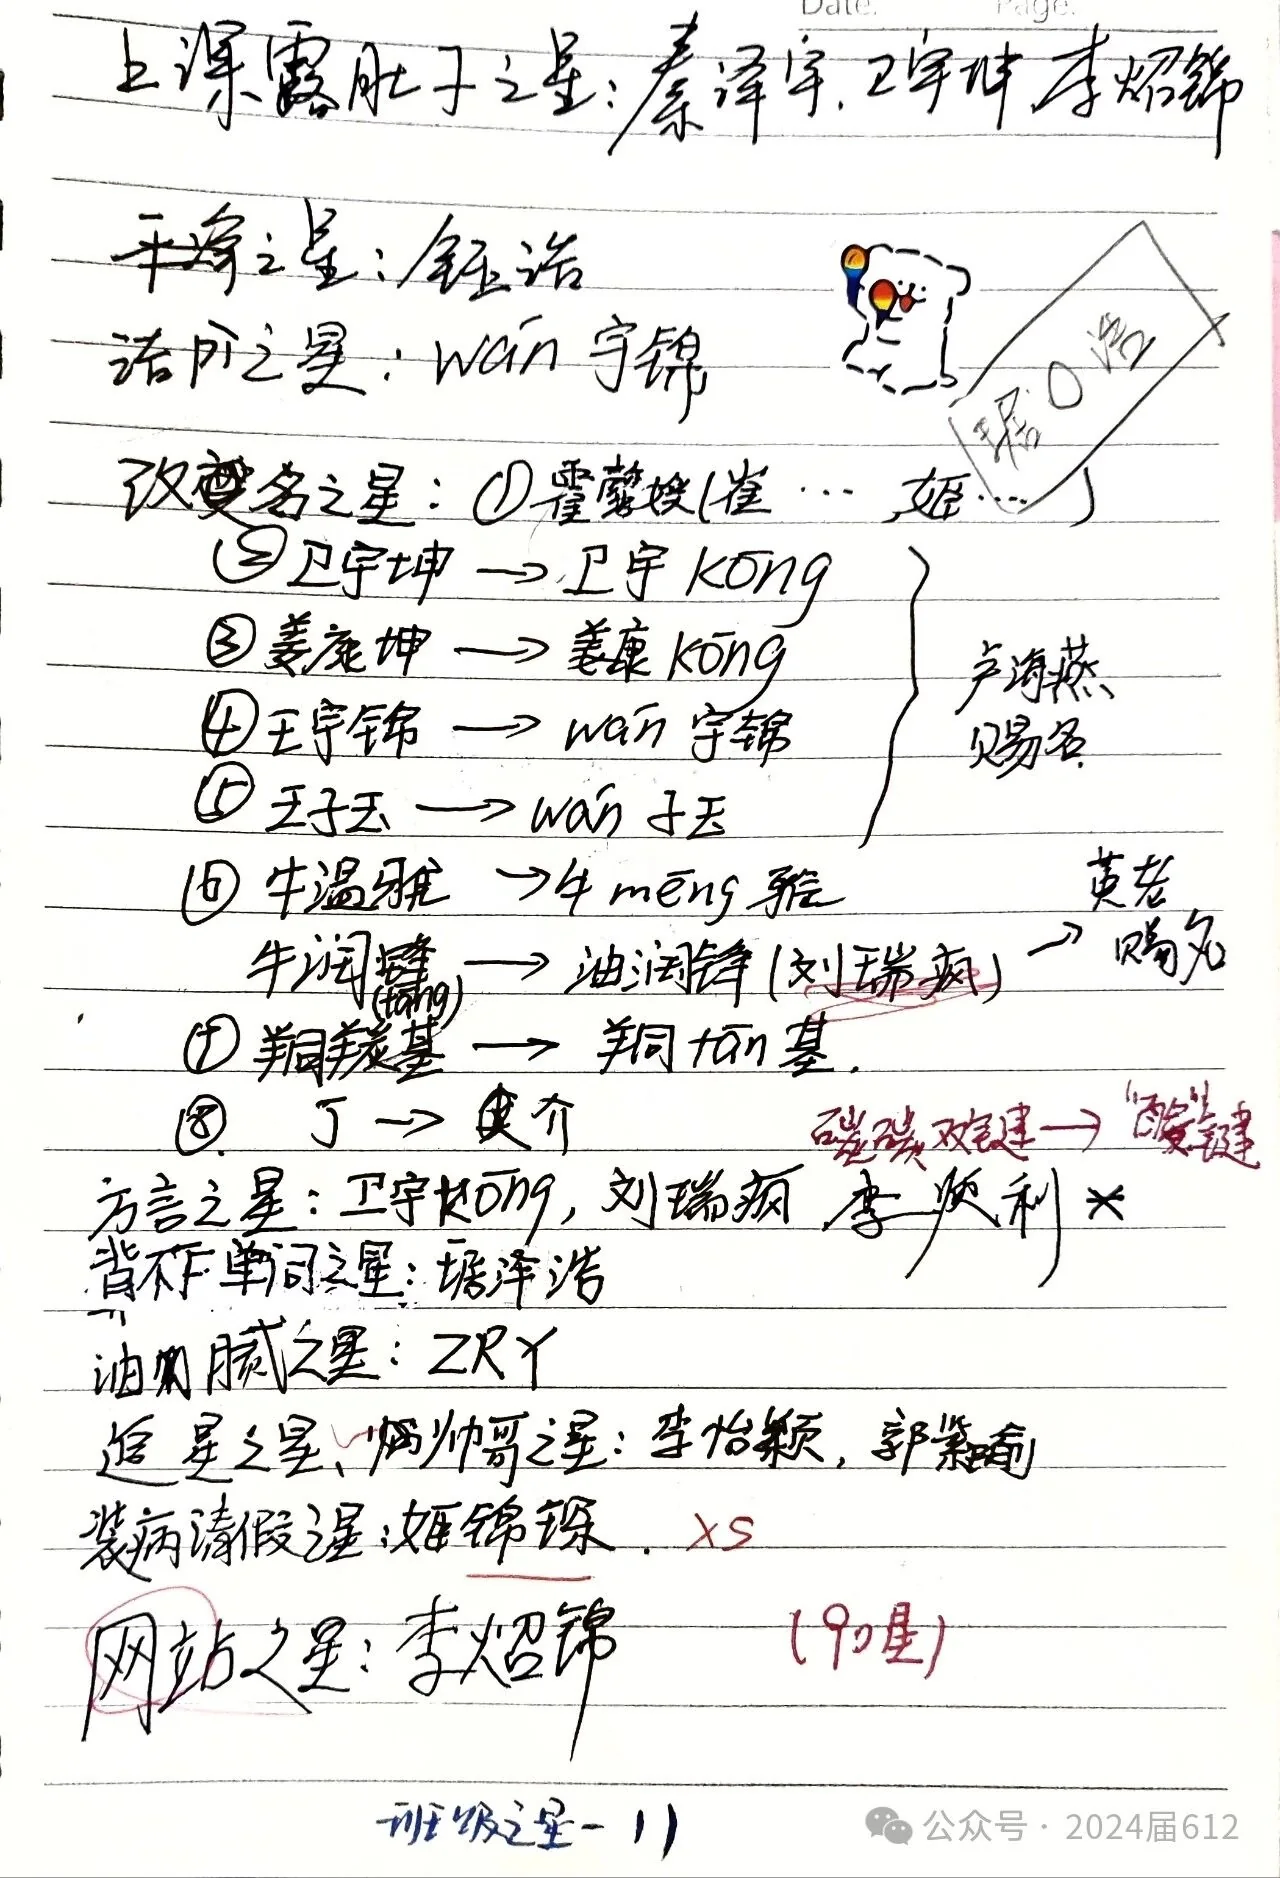 Date. Page.
上课露肚子之星：秦泽宇，卫宇坤，李炤锦
之星：钰浩
活阶之星：wán 宇锦
琚〇浩
改名之星：①霍馨嫂(崔……，姬……)
②卫宇坤→卫宇kōng
③姜康坤→姜康kōng
④王宇锦→wán 宇锦
⑤王子玉→wán 子玉
卢海燕
赐名
⑥牛温雅→牛 mēng 
牛润锋→油润锋(刘瑞疯)→
(tāng)
英老
赐名
⑦翔羰基→翔tān基.
⑧ 丁→介
碳碳双键→"酸"键
方言之星：卫宇kōng，刘瑞疯，李顺利×
背不下单词之星：琚泽浩
油腻之星：ZRY
追星之星、帅哥之星：李怡颖，郭紫瑜
装病请假之星：姬锦铄. XS
网站之星：李炤锦 (90星)
班级之星-11
公众号·2024届612